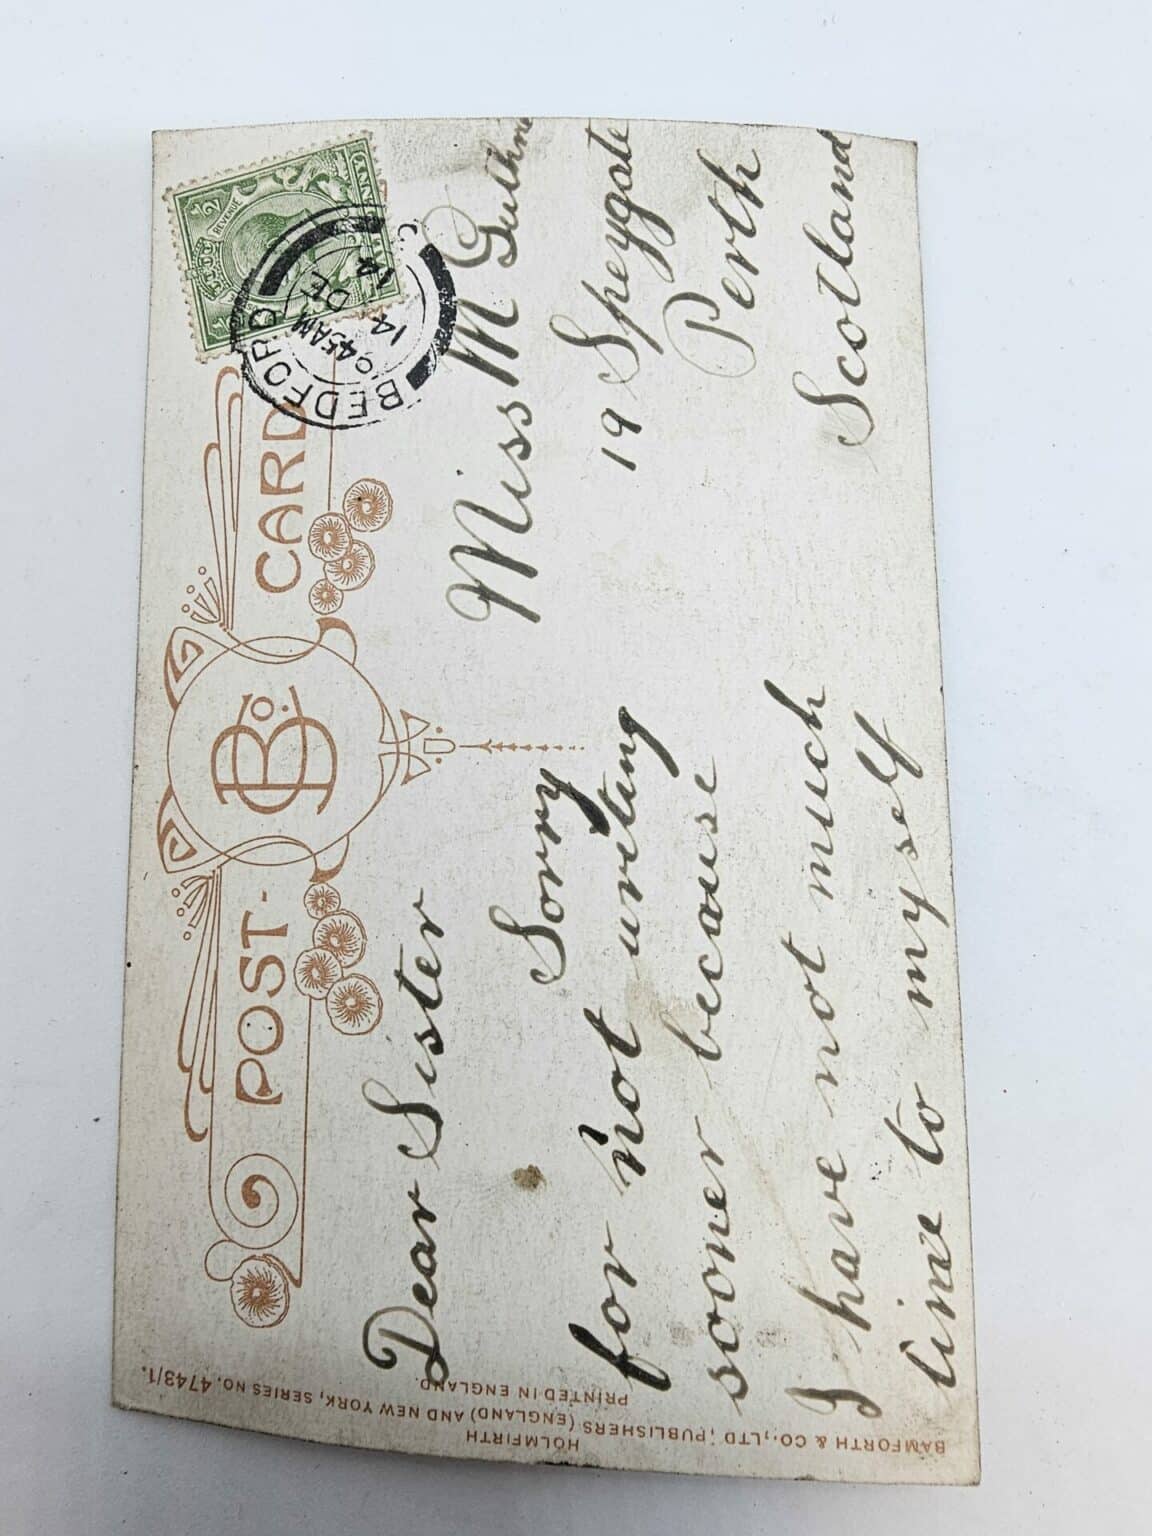 POST CARD
B Co.
½ REVENUE ½
BEDFORD
9.45AM
14 DE
14
Dear Sister
Sorry
for not writing
sooner because
I have not much
time to myself
Miss M Guthrie
19 Speygate
Perth
Scotland
BAMFORTH & CO., LTD; PUBLISHERS (ENGLAND) AND NEW YORK, SERIES NO. 4743/1.
HOLMFIRTH
PRINTED IN ENGLAND.